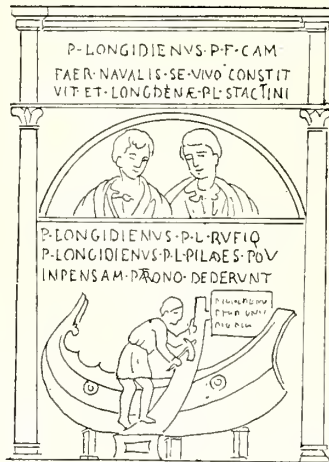 P·LONGIDIENVS·P·F·CAM
FABR·NAVALIS·SE·VIVO·CONSTIT
VIT·ET·LONGIDENÆ·P·L·STACTINI
P·LONGIDIENVS·P·L·RVFIO
P·LONGIDIENVS·P·L·PILADES·POV
INPENSAM·PATRONO·DEDERVNT